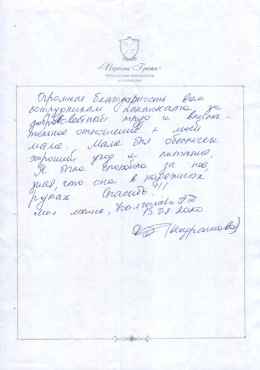 «Первая Грата»
Огромная благодарность вам
сотрудникам пансионата за
добросовестный труд и внима-
тельное отношение к моей
маме. Мама был обеспечен
хороший уход и питание.
Я была спокойна за неё,
зная, что она в надежных
руках. Спасибо!!!
Моя мама,
15.08.2020